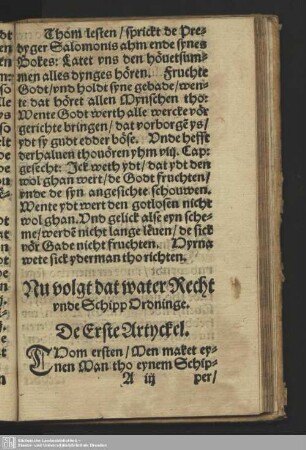 Thom lesten / sprickt de Pre-
dyger Salomonis ahm ende synes
Bokes: Latet vns den höuetsum-
men alles dynges hören. Fruchte
Godt / vnd holdt syne gebade / wen-
te dat höret allen Mynschen tho:
Wente Godt werth alle wercke vör
gerichte bringen / dat vorborgē ys /
ydt sy gudt edder böse. Vnde hefft
derhaluen thouören yhm viij. Cap:
gesecht: Ick weth ydt / dat ydt den
wol ghan wert / de Godt fruchten /
vnde de syn angesichte schouwen.
Wente ydt wert den gotlosen nicht
wol ghan. Vnd gelick alse eyn sche-
me / werdē nicht lange leuen / de sick
vör Gade nicht fruchten. Hyrna
wete sick yderman tho richten.
Nu volgt dat water Recht
vnde Schipp Ordninge.
De Erste Artyckel.
Thom ersten / Men maket ey-
nen Man tho eynem Schip-
A iij per /